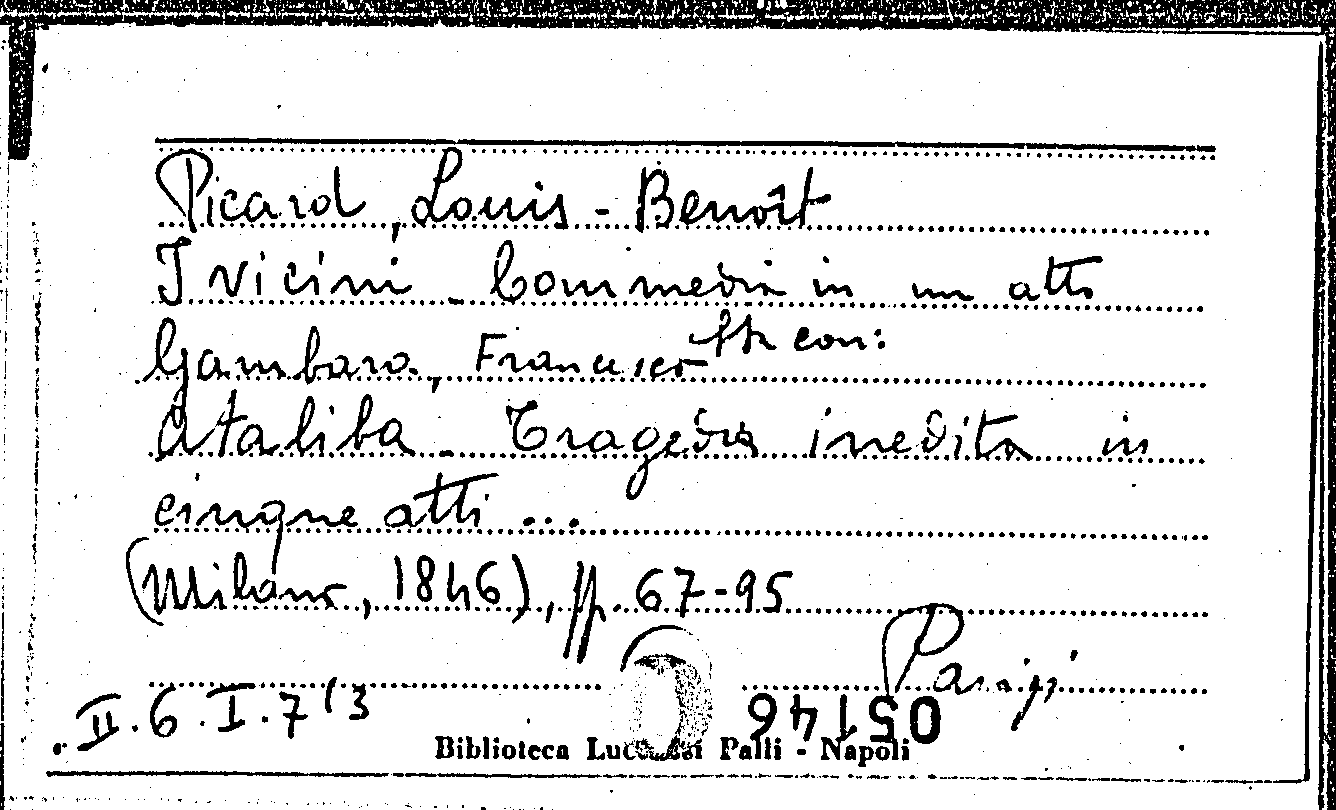 Picard, Louis-Benoît
I vicini - Commedia in un atto
Gambara, Francesco con:
Ataliba - Tragedia inedita in
cinque atti ...
(Milano, 1846), pp. 67-95
Parigi
II.6.I.7/3
05146
Biblioteca Lucchesi Palli - Napoli